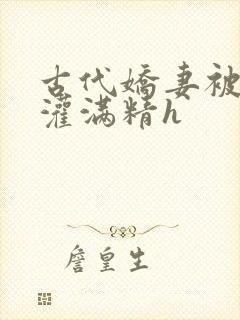 古代娇妻被
灌满精h
詹皇生